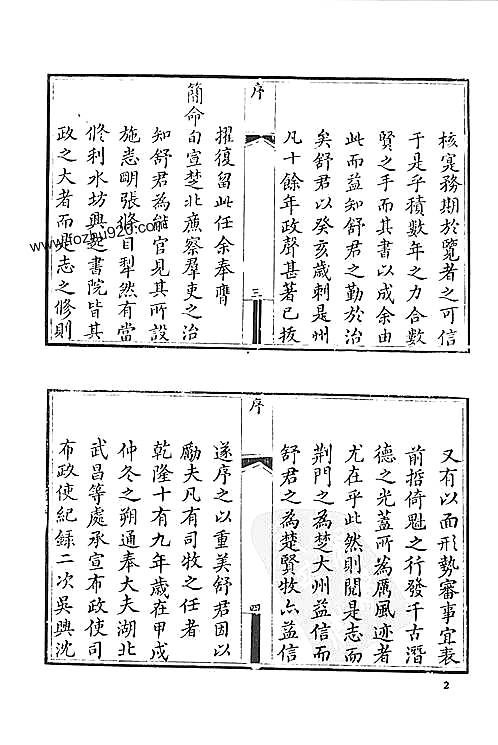 核寔務期於覽者之可信
于是乎積數年之力合數
賢之手而其書以成余由
此而益知舒君之勤於治
矣舒君以癸亥歲刺是州
凡十餘年政聲甚著已拔
序
三
擢復留此任余奉
簡命自宣楚北廉察羣吏之治
知舒君為能官見其所設
施志明張條目犁然有當
修利水坊興書院皆其
政之大者而是志之修則
又有以面形勢審事宜表
前哲倚魁之行發千古潛
德之光蓋所為厲風迹者
尤在乎此然則閱是志而
荆門之為楚大州益信而
舒君之為楚賢牧亦益信
序
四
遂序之以重美舒君因以
勵夫凡有司牧之任者
乾隆十有九年歲在甲戌
仲冬之朔通奉大夫湖北
武昌等處承宣布政使司
布政使紀錄二次吳興沈
2
www.fozhu920.com